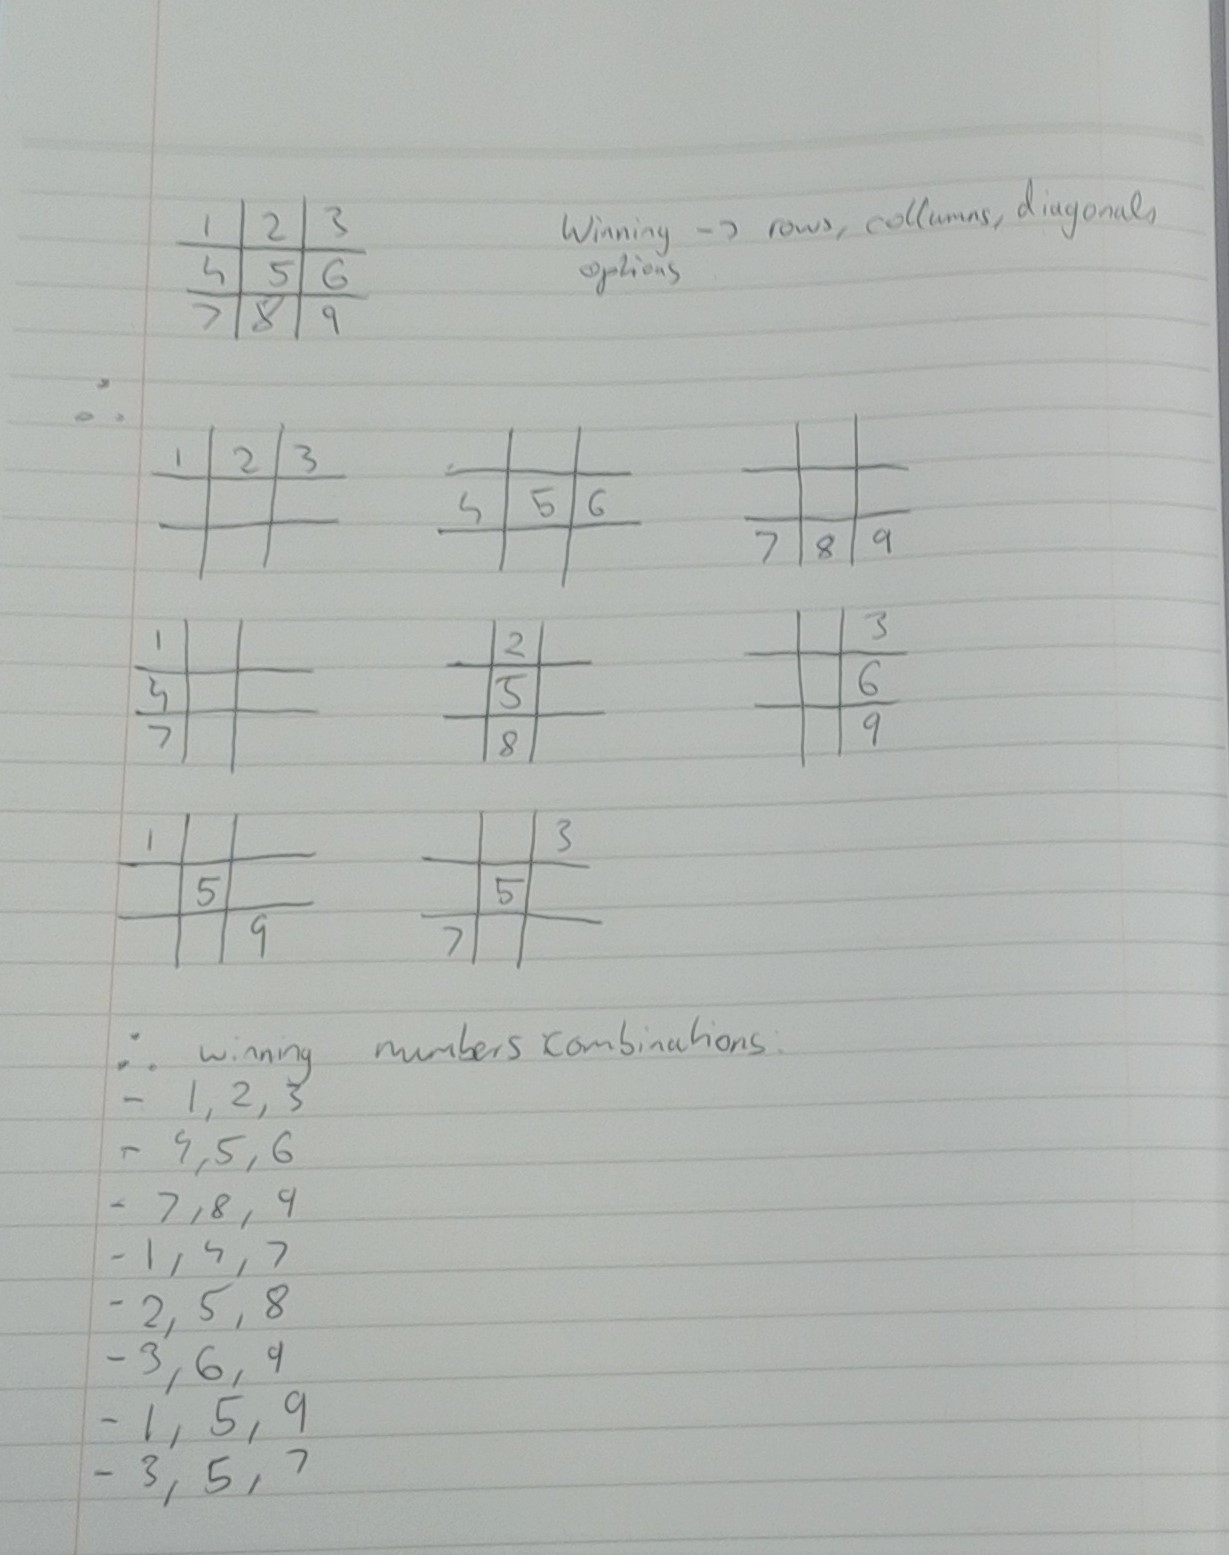 1 2 3
4 5 6
7 8 9
Winning -> rows, collumns, diagonals
options
∴
1 2 3
4 5 6
7 8 9
1
4
7
2
5
8
3
6
9
1
5
9
3
5
7
∴ winning numbers combinations:
- 1, 2, 3
- 4, 5, 6
- 7, 8, 9
- 1, 4, 7
- 2, 5, 8
- 3, 6, 9
- 1, 5, 9
- 3, 5, 7